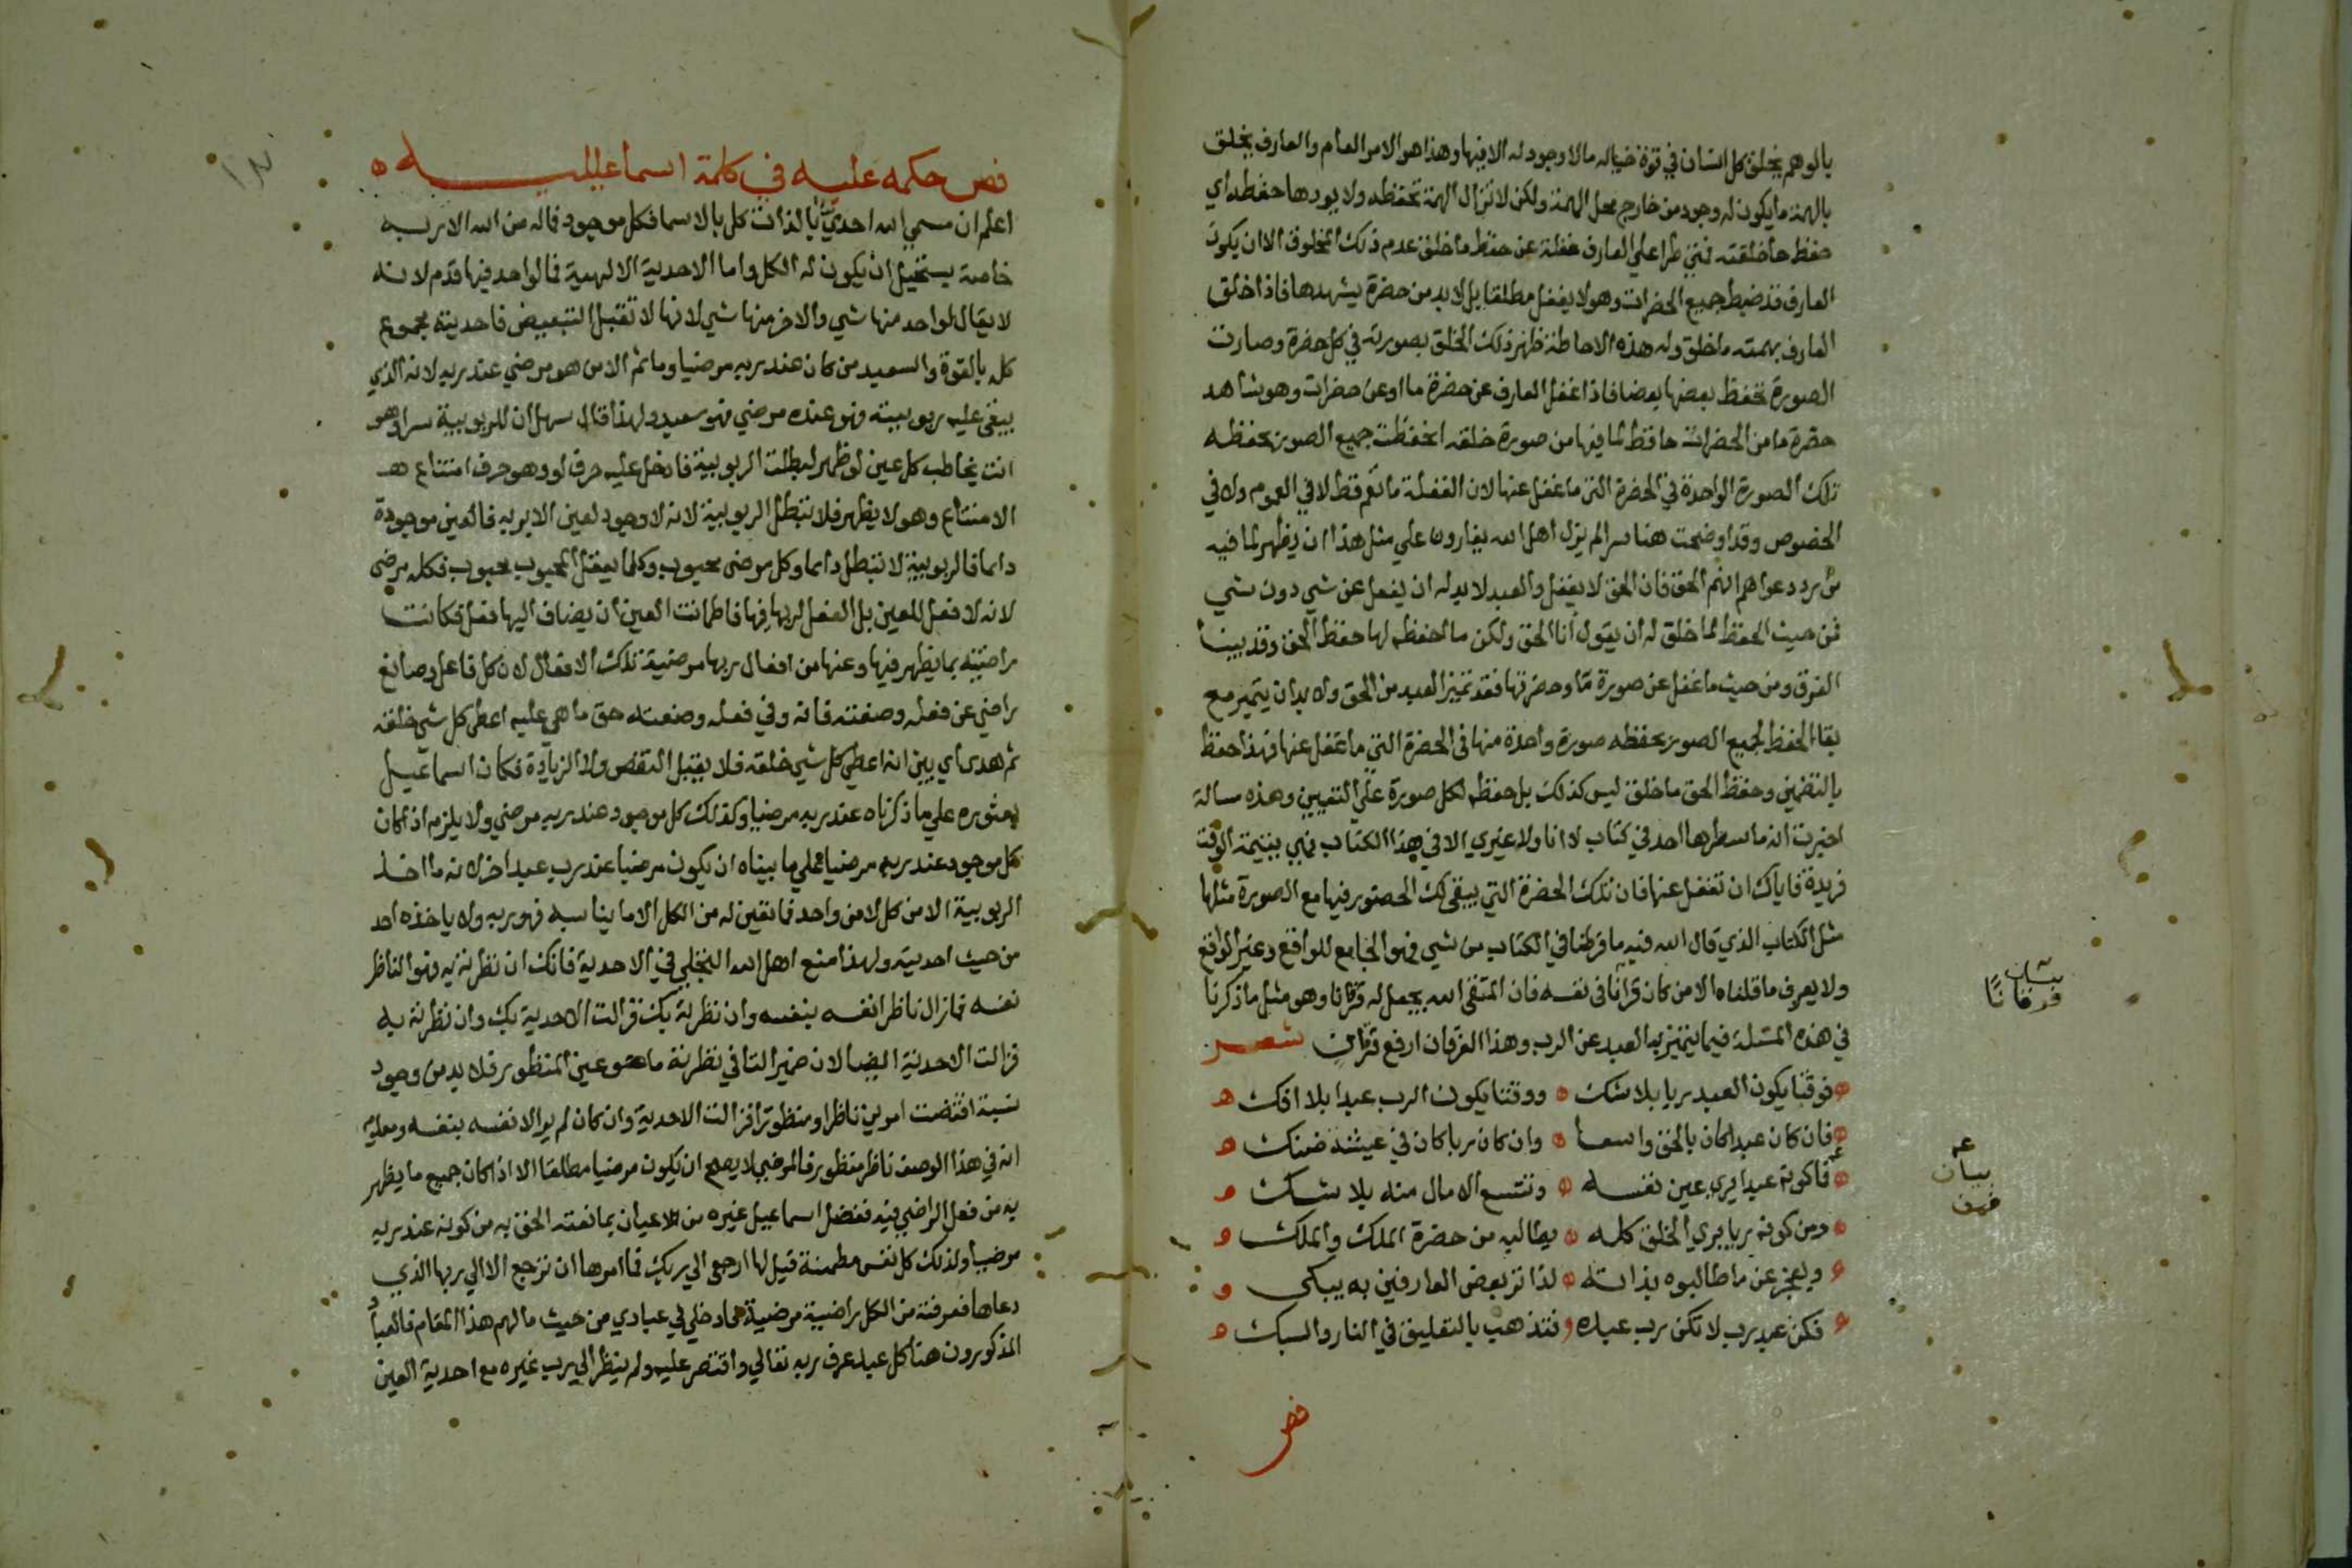 بالوهم يخلق كل انسان في قوة خياله مالا وجود له الا فيها وهذا هو الامر العام والعارف يخلق
بالهمة ما يكون له وجود من خارج محل الهمة ولكن لا تزال الهمة تحفظه ولا يودها حفظه اي
حفظ ما خلقته فمتي طرا علي العارف غفلة عن حفظ ما خلق عدم ذلك المخلوق الا ان يكون
العارف قد ضبط جميع الحضرات وهو لا يغفل مطلقا بل لا بد من حضرة يشهدها فاذا خلق
العارف بهمته ما خلق وله هذه الاحاطة ظهر ذلك الخلق بصورته في كل حضرة وصارت
الصورة تحفظ بعضها بعضا فاذا غفل العارف عن حضرة ما او عن حضرات وهو شاهد
حضرة ما من الحضرات حافظ لما فيها من صورة خلقه انحفظت جميع الصور بحفظه
تلك الصورة الواحدة في الحضرة التي ما غفل عنها لان الغفلة ما تعم قط لا في العموم ولا في
الخصوص وقد اوضحت هنا سرا لم يزل اهل الله يغارون علي مثل هذا ان يظهر لما فيه
من رد دعواهم انهم الحق فان الحق لا يغفل والعبد لا بد له ان يغفل عن شي دون شي
فمن حيث الحفظ لما خلق له ان يقول انا الحق ولكن ما حفظه لها حفظ الحق وقد بينا
الفرق ومن حيث ما غفل عن صورة ما وحضرتها فقد تميز العبد من الحق ولا بد ان يتميز مع
بقا الحفظ لجميع الصور بحفظه صورة واحدة منها في الحضرة التي ما غفل عنها فهذا حفظ
بالتضمين وحفظ الحق ما خلق ليس كذلك بل حفظه لكل صورة علي التعيين وهذه مسالة
اخبرت انه ما سطرها احد في كتاب لا انا ولا غيري الا في هذا الكتاب فهي يتيمة الوقت
فريدة فاياك ان تغفل عنها فان تلك الحضرة التي يبقي لك الحضور فيها مع الصورة مثلها
مثل الكتاب الذي قال الله فيه ما فرطنا في الكتاب من شي فهو الجامع للواقع وغير الواقع
ولا يعرف ما قلناه الا من كان قرانا في نفسه فان المتقي الله يجعل له فرقانا وهو مثل ما ذكرنا
في هذه المسئلة فيما يتميز به العبد عن الرب وهذا الفرقان ارفع فرقان شعر
فوقتا يكون العبد ربا بلا شك ووقتا يكون الرب عبدا بلا افك
فان كان عبدا كان بالحق واسعا وان كان ربا كان في عيشة ضنك
فاكونه عبدا يري عين نفسه وتتسع الامال منه بلا شك
ومن كونه ربا يري الخلق كله يطالبه من حضرة الملك والملك
ويعجز عن ما طالبوه بذاته لذا تر بعض العارفين به يبكى
فكن عبد رب لا تكن رب عبده فتذهب بالتعليق في النار والسبك
فص
فرقانا
بيان
فص حكمه عليه في كلمة اسماعيليه
اعلم ان مسمي الله احدي بالذات كل بالاسما فكل موجود فماله من الله الا ربه
خاصة يستحيل ان يكون له الكل واما الاحدية الالهية فما لواحد فيها قدم لانه
لا يقال لواحد منها شي والاخر منها شي لانها لا تقبل التبعيض فاحديته مجموع
كله بالقوة والسعيد من كان عند ربه مرضيا وما ثم الا من هو مرضي عند ربه لانه الذي
يبقي عليه ربوبيته فهو عنده مرضي فهو سعيد ولهذا قال سهل ان للربوبية سرا وهو
انت يخاطب كل عين لو ظهر لبطلت الربوبية فادخل عليه حرف لو وهو حرف امتناع
الامتناع وهو لا يظهر فلا تبطل الربوبية لانه لا وجود لعين الا بربه فالعين موجودة
دايما فالربوبية لا تبطل دايما وكل مرضي محبوب وكلما يفعل المحبوب محبوب فكله مرضي
لانه لا فعل للعين بل الفعل لربها فيها فاطمانت العين ان يضاف اليها فعل فكانت
راضية بما يظهر فيها وعنها من افعال ربها مرضية تلك الافعال لان كل فاعل وصانع
راضي عن فعله وصنعته فانه وفي فعله وصنعته حق ما هي عليه اعطي كل شي خلقه
ثم هدى اي بين انه اعطي كل شي خلقه فلا يقبل النقص ولا الزيادة فكان اسماعيل
بعثوره علي ما ذكرناه عند ربه مرضيا وكذلك كل موجود عند ربه مرضي ولا يلزم اذا كان
كل موجود عند ربه مرضيا علي ما بيناه ان يكون مرضيا عند رب عبد اخر لانه ما اخذ
الربوبية الا من كل لا من واحد فما تعين له من الكل الا ما يناسبه فهو ربه ولا ياخذه احد
من حيث احديته ولهذا منع اهل الله التجلي في الاحدية فانك ان نظرته به فهو الناظر
نفسه فما زال ناظرا نفسه بنفسه وان نظرته بك فزالت الاحدية بك وان نظرته به
فزالت الاحدية ايضا لان ضمير التا في نظرته ما هو عين المنظور فلا بد من وجود
نسبة اقتضت امرين ناظرا ومنظورا فزالت الاحدية وان كان لم ير الا نفسه بنفسه ومعلوم
انه في هذا الوصف ناظر منظور فالمرضي لا يصح ان يكون مرضيا مطلقا الا اذا كان جميع ما يظهر
به من فعل الراضي فيه ففضل اسماعيل غيره من الاعيان بما نعته الحق به من كونه عند ربه
مرضيا ولذلك كل نفس مطمئنة قيل لها ارجعي الي ربك فما امرها ان ترجع الا الي ربها الذي
دعاها فعرفته من الكل راضية مرضية فادخلي في عبادي من حيث ما لهم هذا المقام فالعباد
المذكورون هنا كل عبد عرف ربه تعالي واقتصر عليه ولم ينظر الي رب غيره مع احدية العين